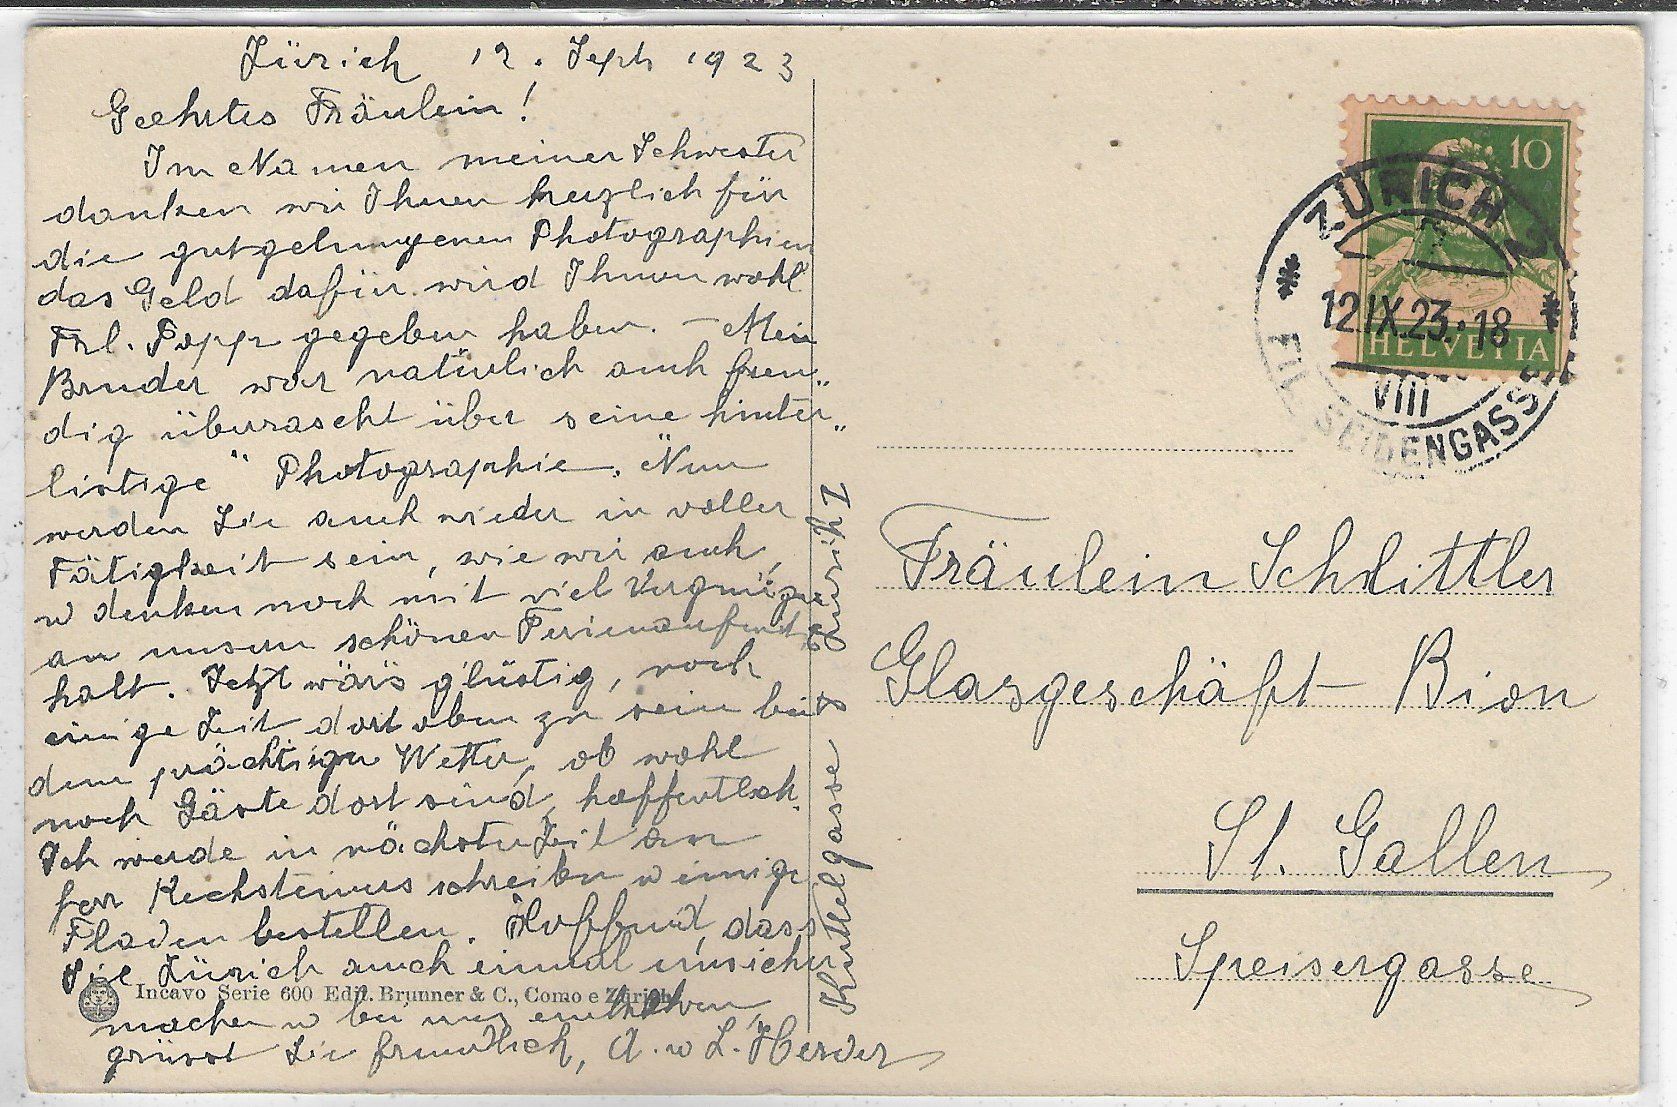 Zürich 12. Sept 1923
Geehrtes Fräulein!
Im Namen meiner Schwester
danken wir Ihnen herzlich für
die gutgelungenen Photographien
das Geld dafür wird Ihnen wohl
Frl. Popp gegeben haben. – Mein
Bruder war natürlich auch freu„
dig überrascht über seine hinter„
listige“ Photographie. Nun
werden Sie auch wieder in voller
Tätigkeit sein, wie wir auch,
u denken noch mit viel Vergnügen
an unsern schönen Ferienaufent
halt. Jetzt wärs glüstig, noch
einige Zeit dort oben zu sein bei
dem prächtigen Wetter, ob wohl
noch Gäste dort sind, hoffentlich.
Ich werde in nächster Zeit an
Kechsteiners schreiben u einige
Fladen bestellen. Hoffend, dass
Sie Zürich auch einmal unsicher
machen u bei uns
grüsst Sie freundlich, A. u L. Herder
Kuttelgasse 8 Zurich 1
Incavo Serie 600 Edit. Brunner & C., Como e Zürich
10
HELVETIA
ZÜRICH
12.IX.23.-18
VIII
FIL. SEIDENGASSE
Fräulein Schlittler
Glasgeschäft Bion
St. Gallen
Speisergasse